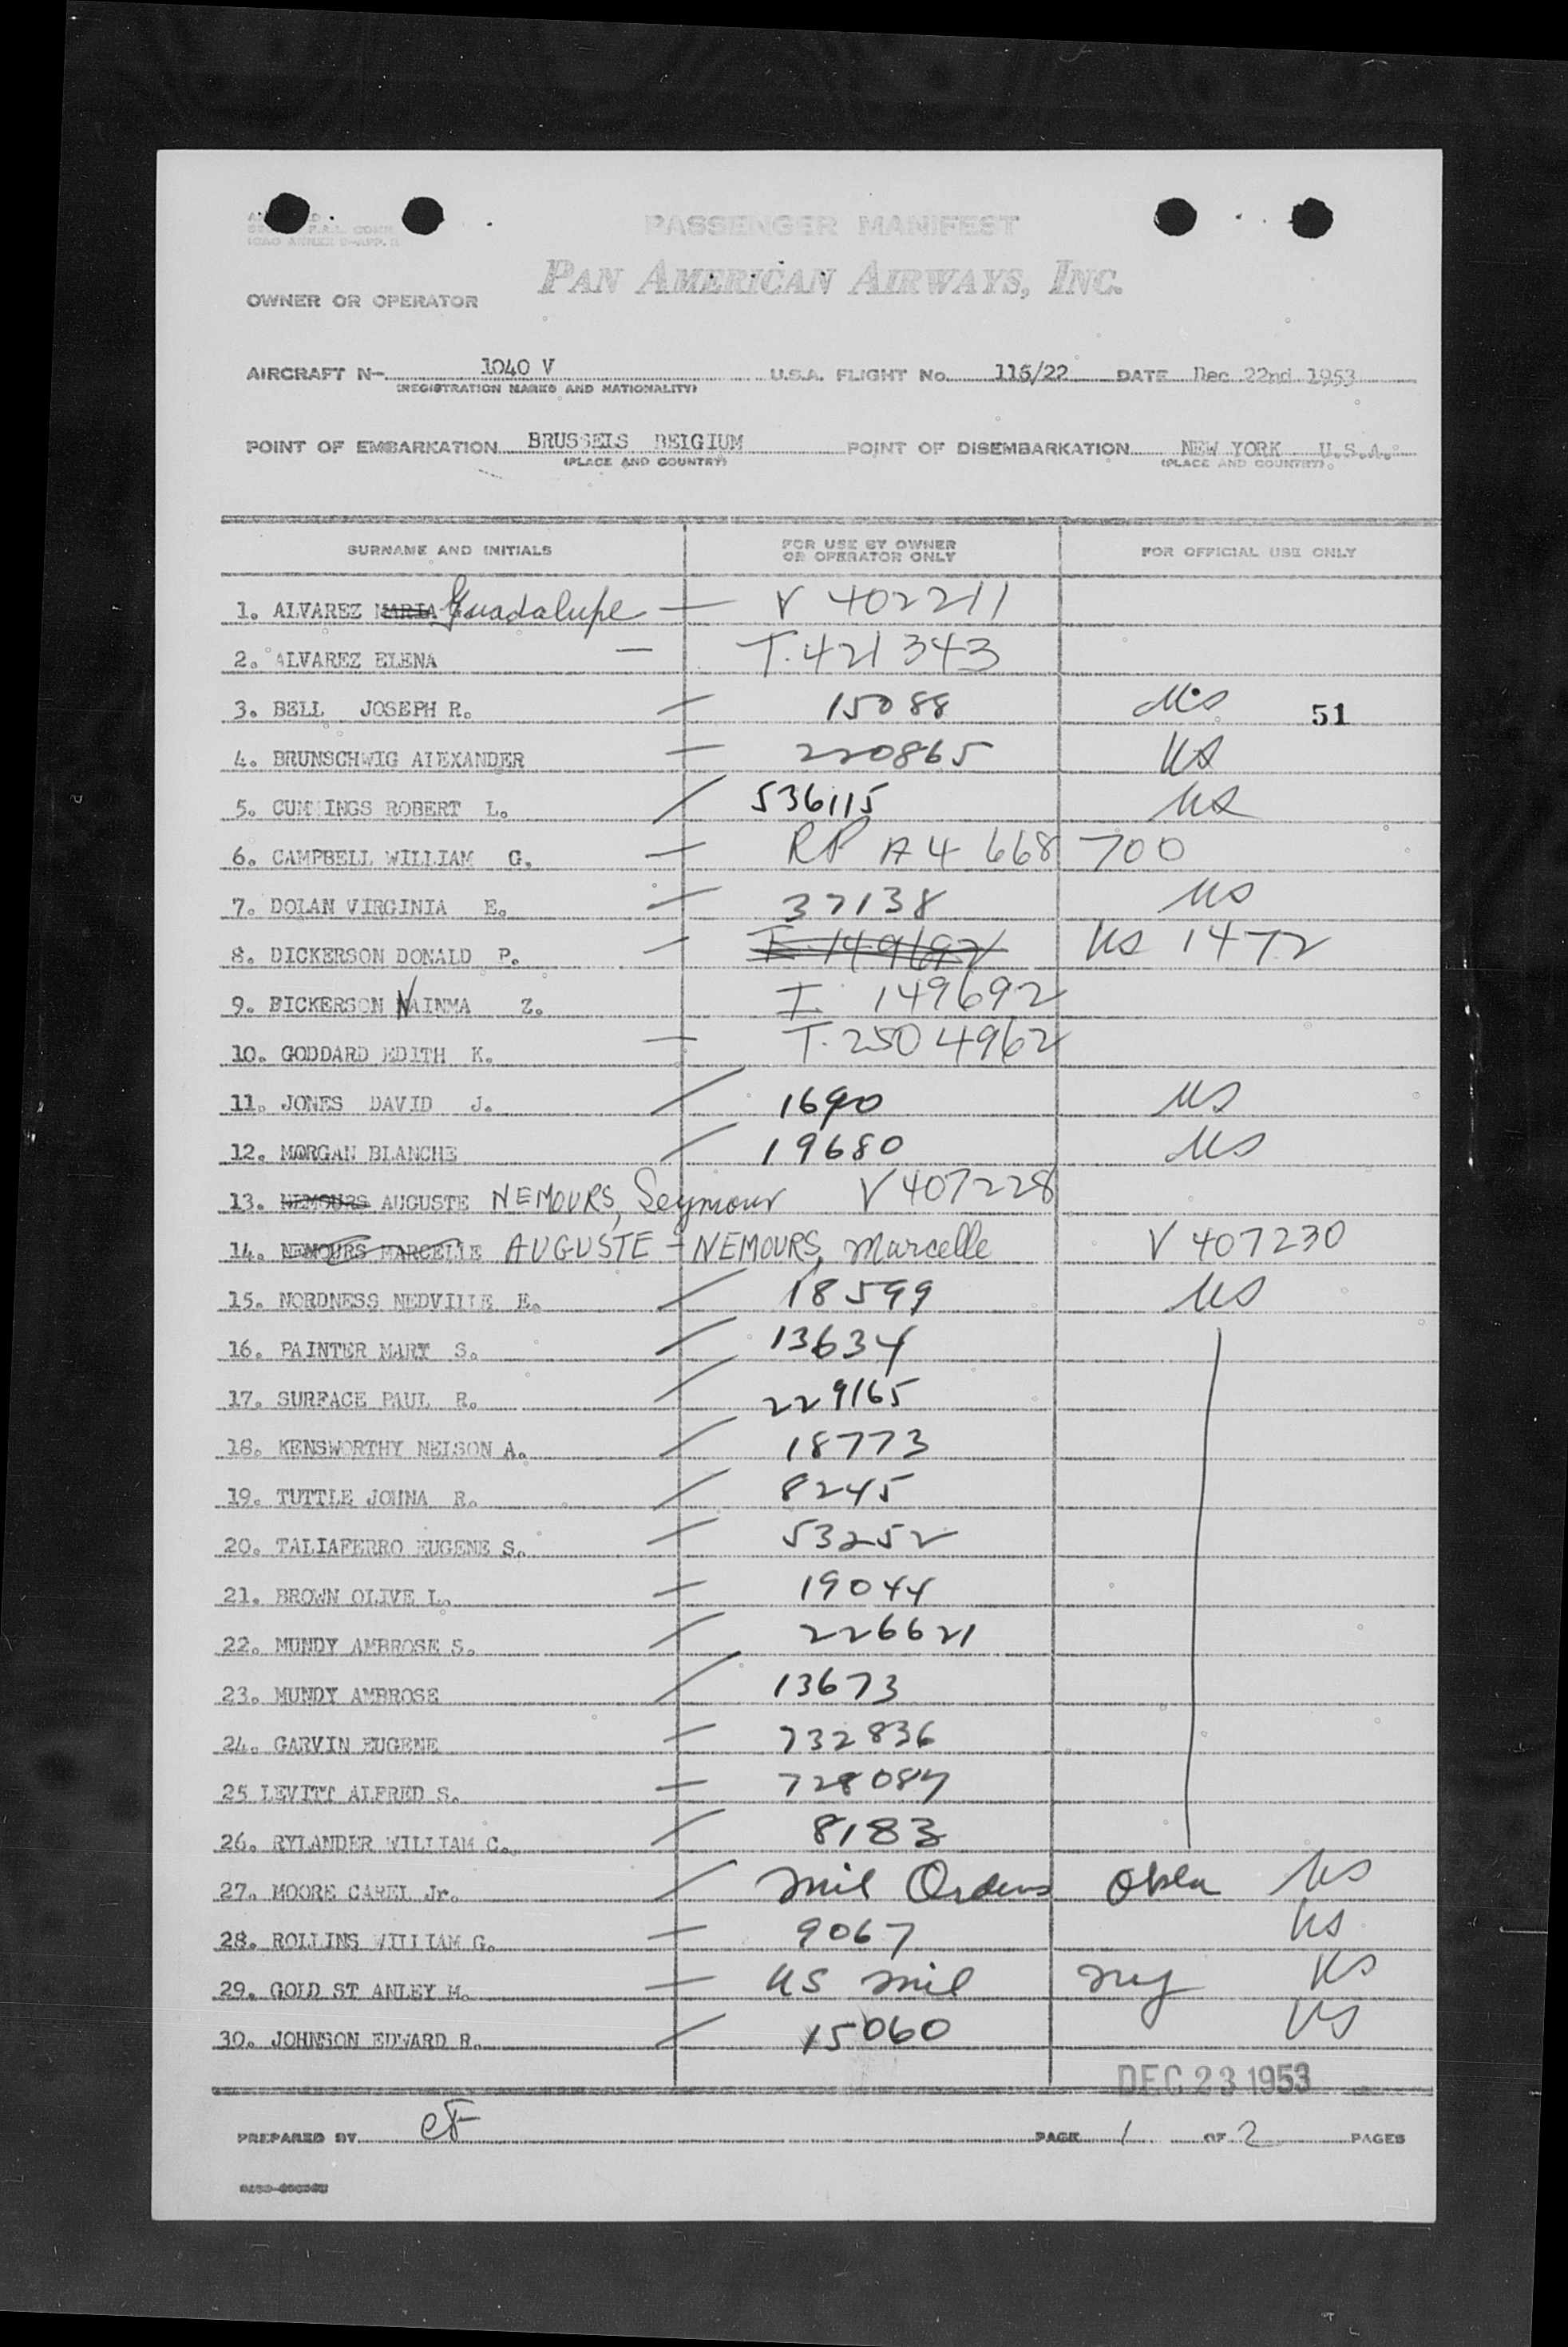 PASSENGER MANIFEST
PAN AMERICAN AIRWAYS, INC.
OWNER OR OPERATOR
AIRCRAFT N- 1040 V U.S.A. FLIGHT No. 116/22 DATE Dec 22nd 1953
(REGISTRATION MARKS AND NATIONALITY)
POINT OF EMBARKATION BRUSSELS BELGIUM POINT OF DISEMBARKATION NEW YORK U.S.A.
(PLACE AND COUNTRY) (PLACE AND COUNTRY)
SURNAME AND INITIALS FOR USE BY OWNER OR OPERATOR ONLY FOR OFFICIAL USE ONLY
1. ALVAREZ MARIA Guadalupe — V 402211
2. ALVAREZ ELENA — T. 421343
3. BELL JOSEPH R. — 15088 US 51
4. BRUNSCHWIG ALEXANDER — 220865 US
5. CUMMINGS ROBERT L. / 536115 US
6. CAMPBELL WILLIAM G. — RP A4 668 700
7. DOLAN VIRGINIA E. — 37138 US
8. DICKERSON DONALD P. — T. 149692 US 1472
9. DICKERSON NAINMA Z. I. 149692
10. GODDARD EDITH K. — T. 2504962
11. JONES DAVID J. / 1690 US
12. MORGAN BLANCHE / 19680 US
13. NEMOURS AUGUSTE NEMOURS, Seymour V 407228
14. NEMOURS MARCELLE AUGUSTE - NEMOURS, Marcelle V 407230
15. NORDNESS NEDVILLE E. / 18599 US
16. PAINTER MARY S. / 13634
17. SURFACE PAUL R. / 229165
18. KENSWORTHY NELSON A. / 18773
19. TUTTLE JOHNA R. / 8245
20. TALIAFERRO EUGENE S. — 53252
21. BROWN OLIVE L. — 19044
22. MUNDY AMBROSE S. / 226621
23. MUNDY AMBROSE / 13673
24. GARVIN EUGENE — 732836
25 LEVITT ALFRED S. — 728087
26. RYLANDER WILLIAM C. / 8183
27. MOORE CAREL Jr. / Mil Orders Okla US
28. ROLLINS WILLIAM G. — 9067 US
29. GOLD ST ANLEY M. — US Mil NY US
30. JOHNSON EDWARD R. / 15060 US
DEC 23 1953
PREPARED BY CF PAGE 1 OF 2 PAGES